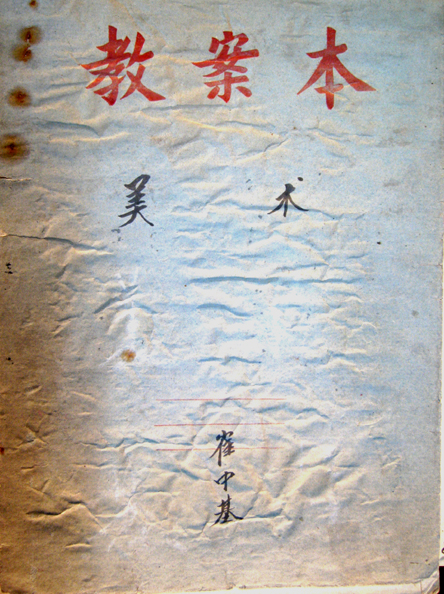 教案本
美术
崔中基